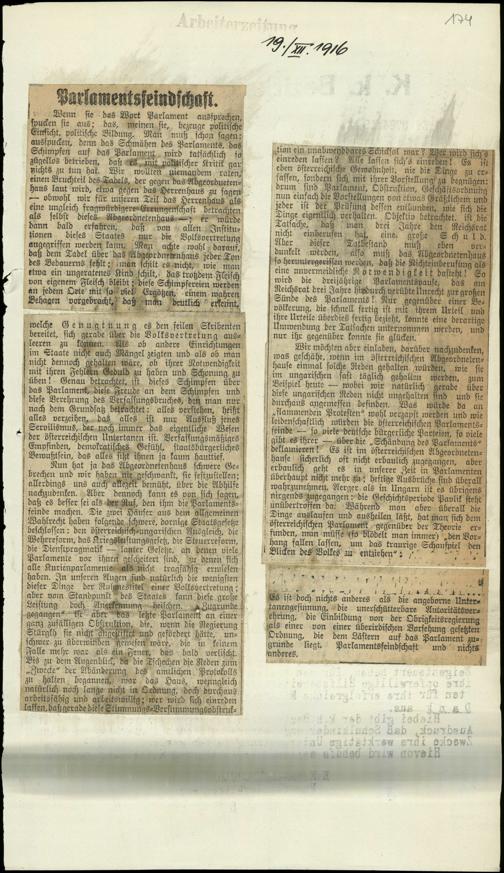 Arbeiterzeitung
19./XII. 1916
174
Parlamentsfeindschaft.
Wenn sie das Wort Parlament aussprechen,
spucken sie aus; das, meinen sie, bezeuge politische
Einsicht, politische Bildung. Man muß schon sagen:
ausspucken, denn das Schmähen des Parlaments, das
Schimpfen auf das Parlament wird tatsächlich so
zügellos betrieben, daß es mit politischer Kritik gar
nichts zu tun hat. Wir wollten niemandem raten,
einen Bruchteil des Tadels, der gegen das Abgeordneten-
haus laut wird, etwa gegen das Herrenhaus zu sagen
— obwohl wir für unseren Teil das Herrenhaus als
eine ungleich fragwürdigere Errungenschaft betrachten
als selbst dieses Abgeordnetenhaus —; er würde
dann bald erfahren, daß von allen Institu-
tionen dieses Staates nur die Volksvertretung
angegriffen werden kann. Man achte wohl darauf,
daß dem Tadel über das Abgeordnetenhaus jeder Ton
des Bedauerns fehlt; man schilt es nicht, wie man
etwa ein ungeratenes Kind schilt, das trotzdem Fleisch
von eigenem Fleisch bleibt; die Schimpfereien werden
an jedem Orte mit so viel Ergötzen, einem wahren
Behagen vorgebracht, daß man deutlich erkennt,
welche Genugtuung es den feilen Skribenten
bereitet, sich gerade über die Volksvertretung aus-
leeren zu können. Als ob andere Einrichtungen
im Staate nicht auch Mängel zeigten und als ob man
nicht dennoch gehalten wäre, ob ihrer Notwendigkeit
mit ihren Fehlern Geduld zu haben und Schonung zu
üben! Genau betrachtet, ist dieses Schimpfen über
das Parlament, diese Freude an dem Schimpfen und
diese Verehrung des Verfassungsbruches, den man nur
nach dem Grundsatz betrachtet: alles verstehen, heißt
alles verzeihen, das alles ist nur Ausfluß jenes
Servilismus, der noch immer das eigentliche Wesen
der österreichischen Untertanen ist. Verfassungsmäßiges
Empfinden, demokratisches Gefühl, staatsbürgerliches
Bewußtsein, das alles sitzt ihnen ja kaum hautief.
Nun hat ja das Abgeordnetenhaus schwere Ge-
brechen und wir haben nie geschwankt, sie festzustellen;
allerdings uns auch allezeit bemüht, über die Abhilfe
nachzudenken. Aber dennoch kann es von sich sagen,
daß es besser sei als der Ruf, den ihm die Parlaments-
feinde machen. Die zwei Häuser aus dem allgemeinen
Wahlrecht haben folgende schwere, dornige Staatsgesetze
beschlossen: den österreichisch-ungarischen Ausgleich, die
Wehrreform, das Kriegsleistungsgesetz, die Steuerreform,
die Dienstpragmatik — lauter Gesetze, an denen viele
Parlamente vor ihnen gescheitert sind, zu denen sich
alle Kurienparlamente als nicht tragfähig erwiesen
haben. In unseren Augen sind natürlich die wenigsten
dieser Dinge der Ruhmestitel einer Volksvertretung;
aber vom Standpunkt des Staates kann diese große
Leistung doch Anerkennung heischen. „Zugrunde
gegangen" ist aber das letzte Parlament an einer
ganz zufälligen Obstruktion, die, wenn die Regierung
Stürgkh sie nicht angestiftet und gefördert hätte, un-
schwer zu überwältigen gewesen wäre, die in keinem
Falle mehr war als ein Fieber, das bald verlischt.
Bis zu dem Augenblick, da die Tschechen die Reden zum
„Zweck" der Abänderung des amtlichen Protokolls
zu halten begannen, war das Haus, wenngleich
natürlich noch lange nicht in Ordnung, doch durchaus
arbeitsfähig und arbeitswillig; wer wird sich einreden
lassen, daß gerade diese Stimmungs-Verstimmungsobstruk-
tion ein unabwendbares Schicksal war? Wer wird sich's
einreden lassen? Alle lassen sich's einreden! Es ist
eben österreichische Gewohnheit, nie die Dinge zu er-
fassen, sondern sich mit ihrer Vorstellung zu begnügen;
drum sind Parlament, Obstruktion, Geschäftsordnung
nun einfach die Vorstellungen von etwas Gräßlichem und
jeder ist der Prüfung dessen entbunden, wie sich die
Dinge eigentlich verhalten. Objektiv betrachtet, ist die
Tatsache, daß man drei Jahre den Reichsrat
nicht einberufen hat, eine große Schuld.
Aber dieser Tatbestand muß eben ver-
dunkelt werden, also muß das Abgeordnetenhaus
so heruntergerissen werden, daß die Nichteinberufung als
eine unvermeidliche Notwendigkeit dasteht! So
wird die dreijährige Parlamentspause, das den
Reichsrat drei Jahre hindurch verübte Unrecht zur großen
Sünde des Parlaments! Nur gegenüber einer Be-
völkerung, die schnell fertig ist mit ihrem Urteil und
ihre Urteile überdies fertig bezieht, konnte eine derartige
Umwendung der Tatsachen unternommen werden, und
nur ihr gegenüber konnte sie glücken.
Wir möchten aber einladen, darüber nachzudenken,
was geschähe, wenn im österreichischen Abgeordneten-
hause einmal solche Reden gehalten würden, wie sie
im ungarischen fast täglich gehalten werden, zum
Beispiel heute — wobei wir natürlich gerade über
diese ungarischen Reden nicht ungehalten sind und sie
durchaus angemessen befinden. Was würde da an
„flammenden Protesten" wohl verzapft werden und wie
leidenschaftlich würden die österreichischen Parlaments-
feinde — so viele deutsche bürgerliche Parteien, so viele
gibt es ihrer — über die „Schändung des Parlaments"
deklamieren! Es ist im österreichischen Abgeordneten-
hause sicherlich oft nicht erbaulich zugegangen, aber
erbaulich geht es in unserer Zeit in Parlamenten
überhaupt nicht mehr zu; heftige Ausbrüche sind überall
wahrzunehmen. Aerger als in Ungarn ist es übrigens
nirgends zugegangen; die Geschichtsperiode Panik steht
unübertroffen da. Während man aber überall die
Dinge auslaufen und aushallen läßt, hat man sich dem
österreichischen Parlament gegenüber der Theorie er-
funden, man müsse (so blödelt man immer) „den Vor-
hang fallen lassen, um das traurige Schauspiel den
Blicken des Volkes zu entziehen";
Es ist doch nichts anderes als die angeborne Unter-
tanengesinnung, die unerschütterbare Autoritätsver-
ehrung, die Einbildung von der Obrigkeitsregierung
als einer von einer überirdischen Vorsehung gesetzten
Ordnung, die dem Lästern auf das Parlament zu-
grunde liegt. Parlamentsfeindschaft und nichts
anderes.